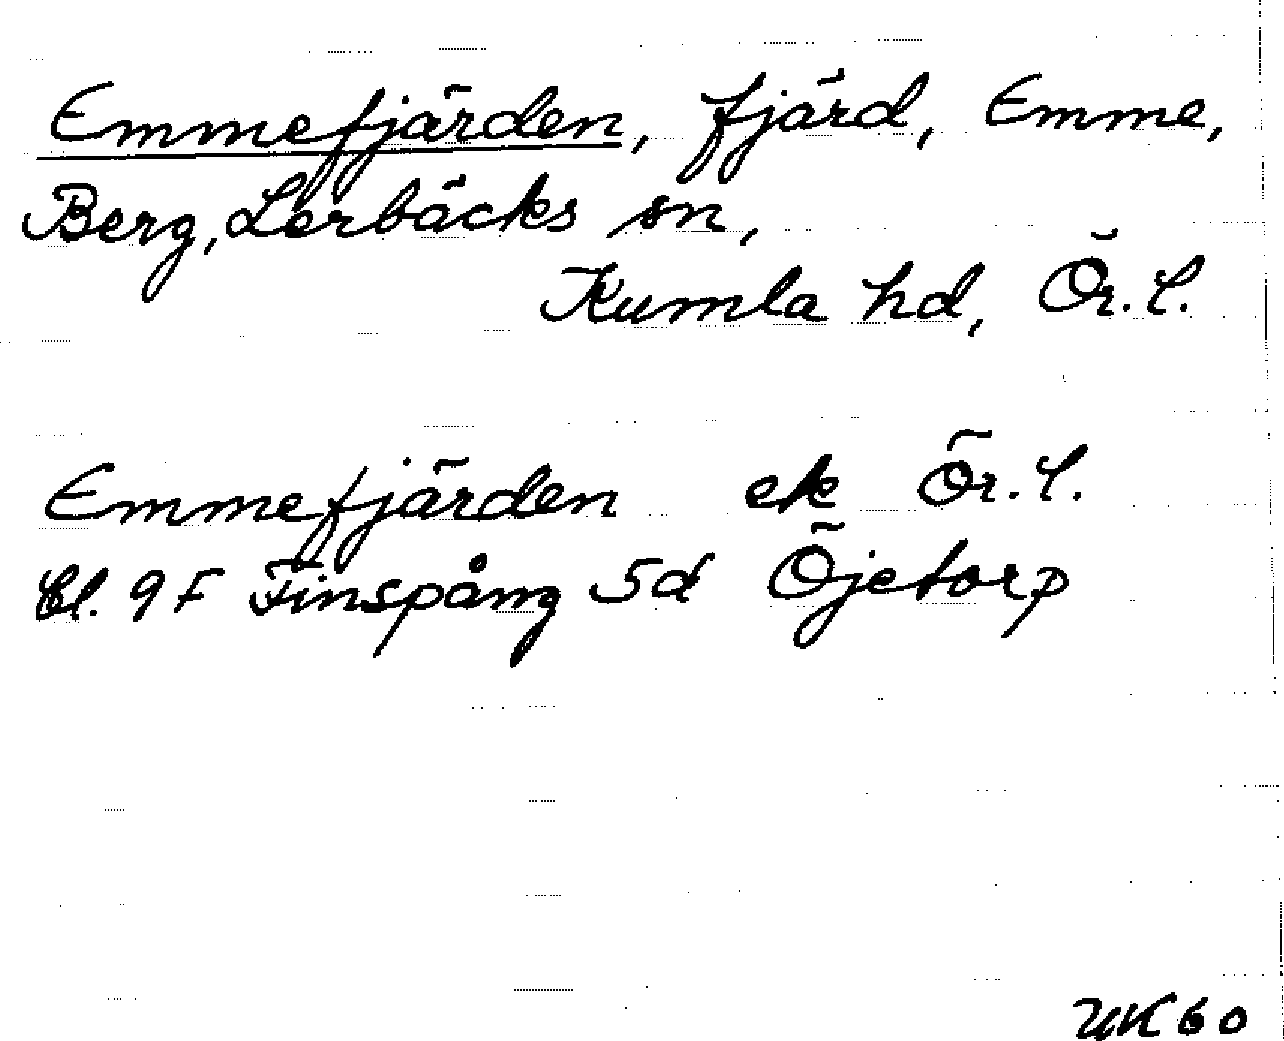 Emmefjärden, fjärd, Emme,
Berg, Lerbäcks sn,
Kumla hd, Ör. l.
Emmefjärden ek Ör. l.
Bl. 9 F Finspång 5d Öjetorp
UK 60